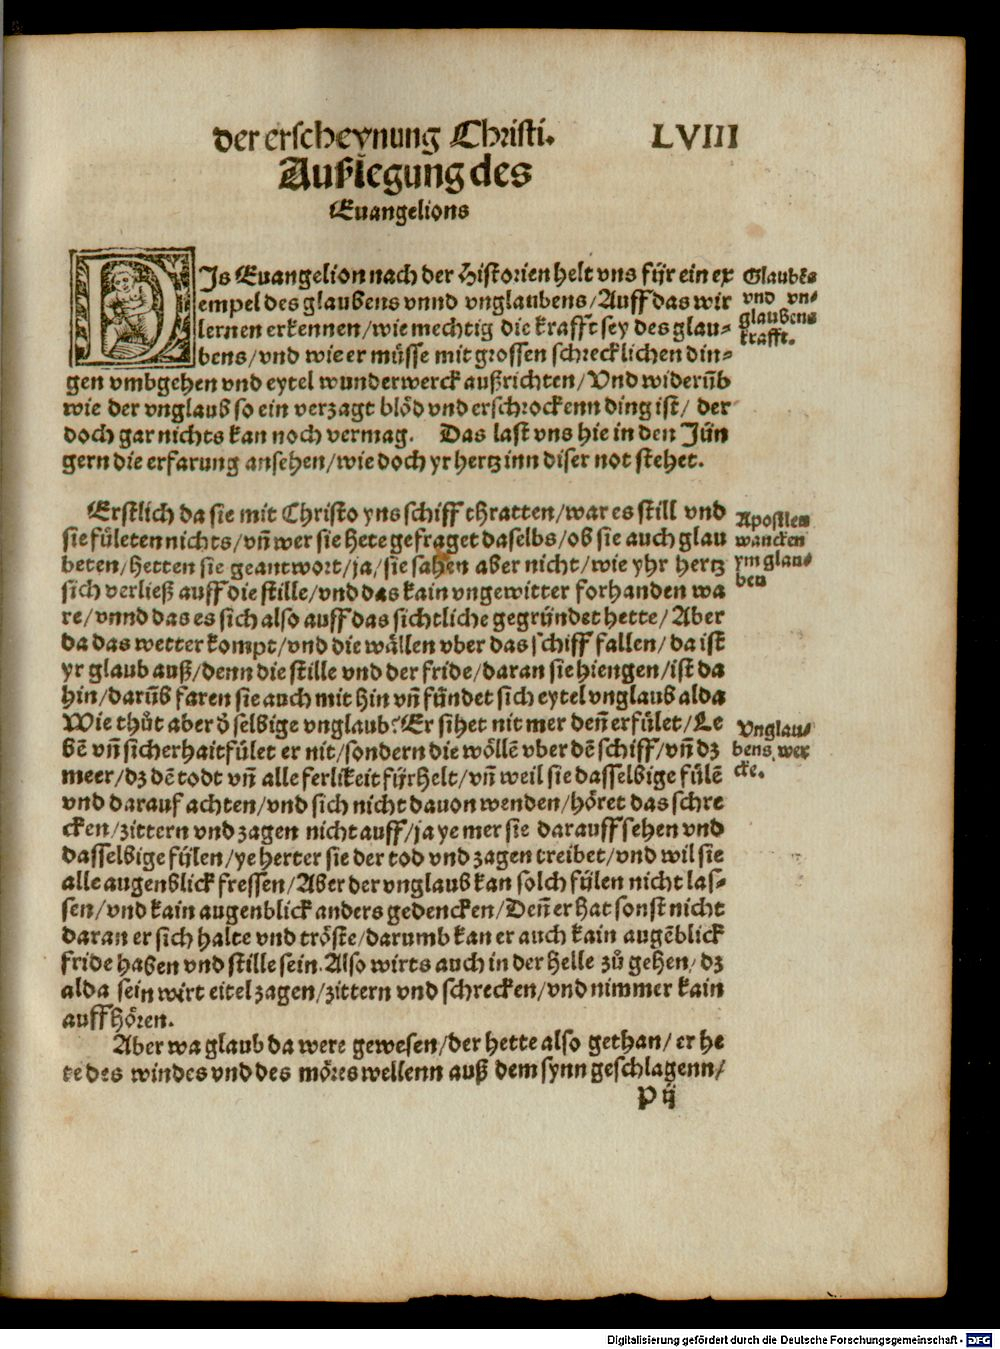 der erscheynung Christi. LVIII
Außlegung des
Euangelions
DJs Euangelion nach der Historien helt vns fÿr ein ex
empel des glaubens vnnd vnglaubens/Auff das wir
lernen erkennen/wie mechtig die krafft sey des glau-
bens/vnd wie er müsse mit grossen schrecklichen din-
gen vmbgehen vnd eytel wunderwerck außrichten/Vnd widerūb
wie der vnglaub so ein verzagt blöd vnd erschrockenn ding ist/ der
doch gar nichts kan noch vermag. Das last vns hie in den Jün
gern die erfarung ansehen/wie doch yr hertz inn diser not stehet.
Glaubēs
vnd vn-
glaubens
krafft.
Erstlich da sie mit Christo yns schiff thratten/war es still vnd
sie fületen nichts/vn̄ wer sie hete gefraget daselbs/ob sie auch glau
beten/hetten sie geantwort/ja/sie sahen aber nicht/wie yhr hertz
sich verließ auff die stille/vnd das kain vngewitter forhanden wa
re/vnnd das es sich also auff das sichtliche gegründet hette/Aber
da das wetter kompt/vnd die wällen vber das schiff fallen/da ist
yr glaub auß/denn die stille vnd der fride/daran sie hiengen/ist da
hin/darūb faren sie auch mit hin vn̄ fündet sich eytel vnglaub alda
Wie thůt aber d̕ selbige vnglaub? Er sihet nit mer den̄ er fület/Le
bē vn̄ sicherhait fület er nit/sondern die wöllē vber dē schiff/vn̄ dz
meer/dz dē todt vn̄ alle ferlikeit fÿrhelt/vn̄ weil sie dasselbige fülē
vnd darauf achten/vnd sich nicht dauon wenden/höret das schre
cken/zittern vnd zagen nicht auff/ja ye mer sie darauff sehen vnd
dasselbige fÿlen/ye herter sie der tod vnd zagen treibet/vnd wil sie
alle augenblick fressen/Aber der vnglaub kan solch fÿlen nicht las-
sen/vnd kain augenblick anders gedencken/Den̄ er hat sonst nicht
daran er sich halte vnd tröste/darumb kan er auch kain augēblick
fride haben vnd stille sein. Also wirts auch in der helle zů gehen/dz
alda sein wirt eitel zagen/zittern vnd schrecken/vnd nimmer kain
auff hören.
Apostlen
wancken
ym glau-
ben
Vnglau-
bens wer
cke.
Aber wa glaub da were gewesen/der hette also gethan/ er he
te des windes vnd des möres wellenn auß dem synn geschlagenn/
P ij
Digitalisierung gefördert durch die Deutsche Forschungsgemeinschaft - DFG